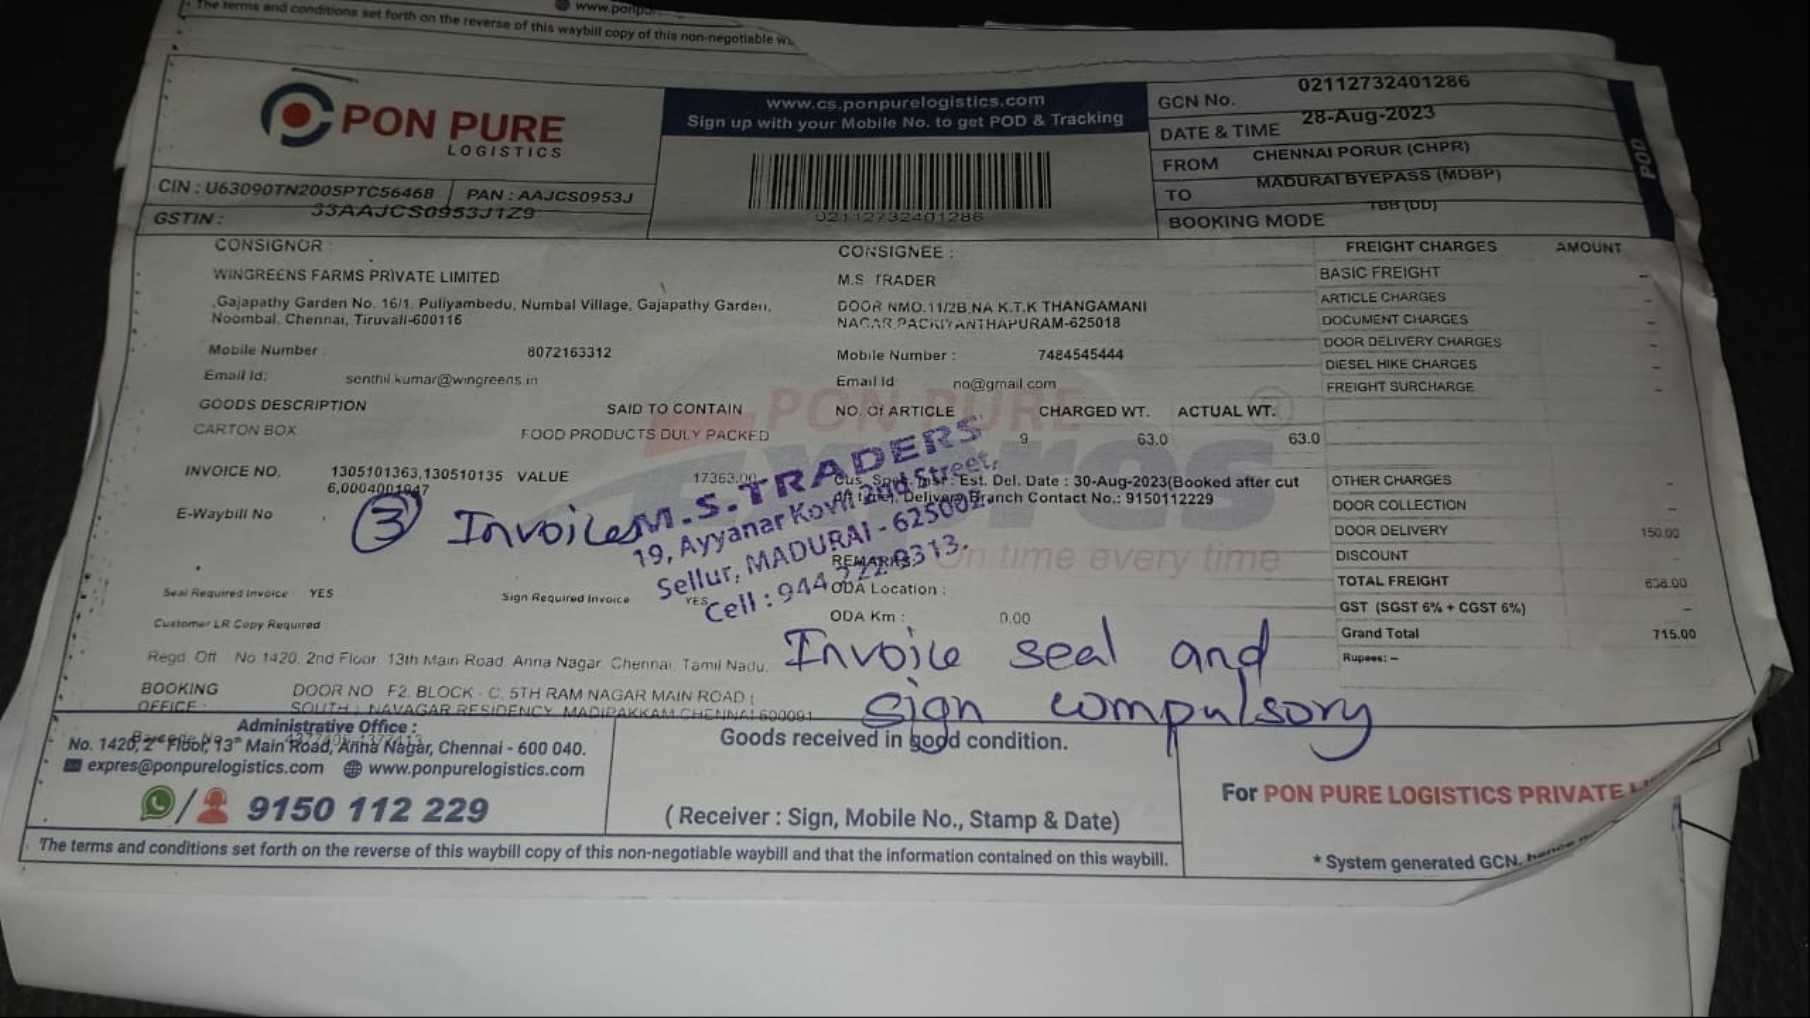 The terms and conditions set forth on the reverse of this waybill copy of this non-negotiable
PON PURE
LOGISTICS
CIN : U63090TN2005PTC56468 PAN : AAJCS0953J
GSTIN : 33AAJCS0953J1Z9
www.cs.ponpurelogistics.com
Sign up with your Mobile No. to get POD & Tracking
02112732401286
GCN No. 02112732401286
DATE & TIME 28-Aug-2023
FROM CHENNAI PORUR (CHPR)
TO MADURAI BYEPASS (MDBP)
BOOKING MODE TBB (DD)
POD
CONSIGNOR :
WINGREENS FARMS PRIVATE LIMITED
,Gajapathy Garden No. 16/1, Puliyambedu, Numbal Village, Gajapathy Garden,
Noombal, Chennai, Tiruvall-600116
Mobile Number : 8072163312
Email Id: senthil.kumar@wingreens.in
CONSIGNEE :
M.S TRADER
DOOR NMO.11/2B,NA K.T.K THANGAMANI
NAGAR,PACKIYANTHAPURAM-625018
Mobile Number : 7484545444
Email Id no@gmail.com
GOODS DESCRIPTION SAID TO CONTAIN NO. Of ARTICLE CHARGED WT. ACTUAL WT.
CARTON BOX FOOD PRODUCTS DULY PACKED 9 63.0 63.0
INVOICE NO. 1305101363,130510135 VALUE 17363.00
6,0004001947
Cus. Spel. Inst : Est. Del. Date : 30-Aug-2023(Booked after cut
off time). Delivery Branch Contact No.: 9150112229
E-Waybill No
3 Invoices
M.S.TRADERS
19, Ayyanar Kovil 2nd Street,
Sellur, MADURAI - 625002
Cell :
PON PURE
Expres
On time every time
REMARKS:
ODA Location :
ODA Km : 0.00
Seal Required Invoice YES Sign Required Invoice YES
Customer LR Copy Required
Regd. Off No 1420, 2nd Floor, 13th Main Road, Anna Nagar, Chennai, Tamil Nadu,
Invoice seal and
sign compulsory
BOOKING OFFICE : DOOR NO F2, BLOCK - C, 5TH RAM NAGAR MAIN ROAD (
SOUTH ), NAVAGAR RESIDENCY, MADIPAKKAM,CHENNAI 600091
FREIGHT CHARGES AMOUNT
BASIC FREIGHT -
ARTICLE CHARGES -
DOCUMENT CHARGES -
DOOR DELIVERY CHARGES -
DIESEL HIKE CHARGES -
FREIGHT SURCHARGE -
OTHER CHARGES -
DOOR COLLECTION -
DOOR DELIVERY 150.00
DISCOUNT -
TOTAL FREIGHT
GST (SGST 6% + CGST 6%) -
Grand Total 715.00
Rupees: –
Administrative Office :
No. 1420, 2nd Floor, 13th Main Road, Anna Nagar, Chennai - 600 040.
expres@ponpurelogistics.com www.ponpurelogistics.com
/ 9150 112 229
Goods received in good condition.
( Receiver : Sign, Mobile No., Stamp & Date)
For PON PURE LOGISTICS PRIVATE
* System generated GCN, hence
The terms and conditions set forth on the reverse of this waybill copy of this non-negotiable waybill and that the information contained on this waybill.